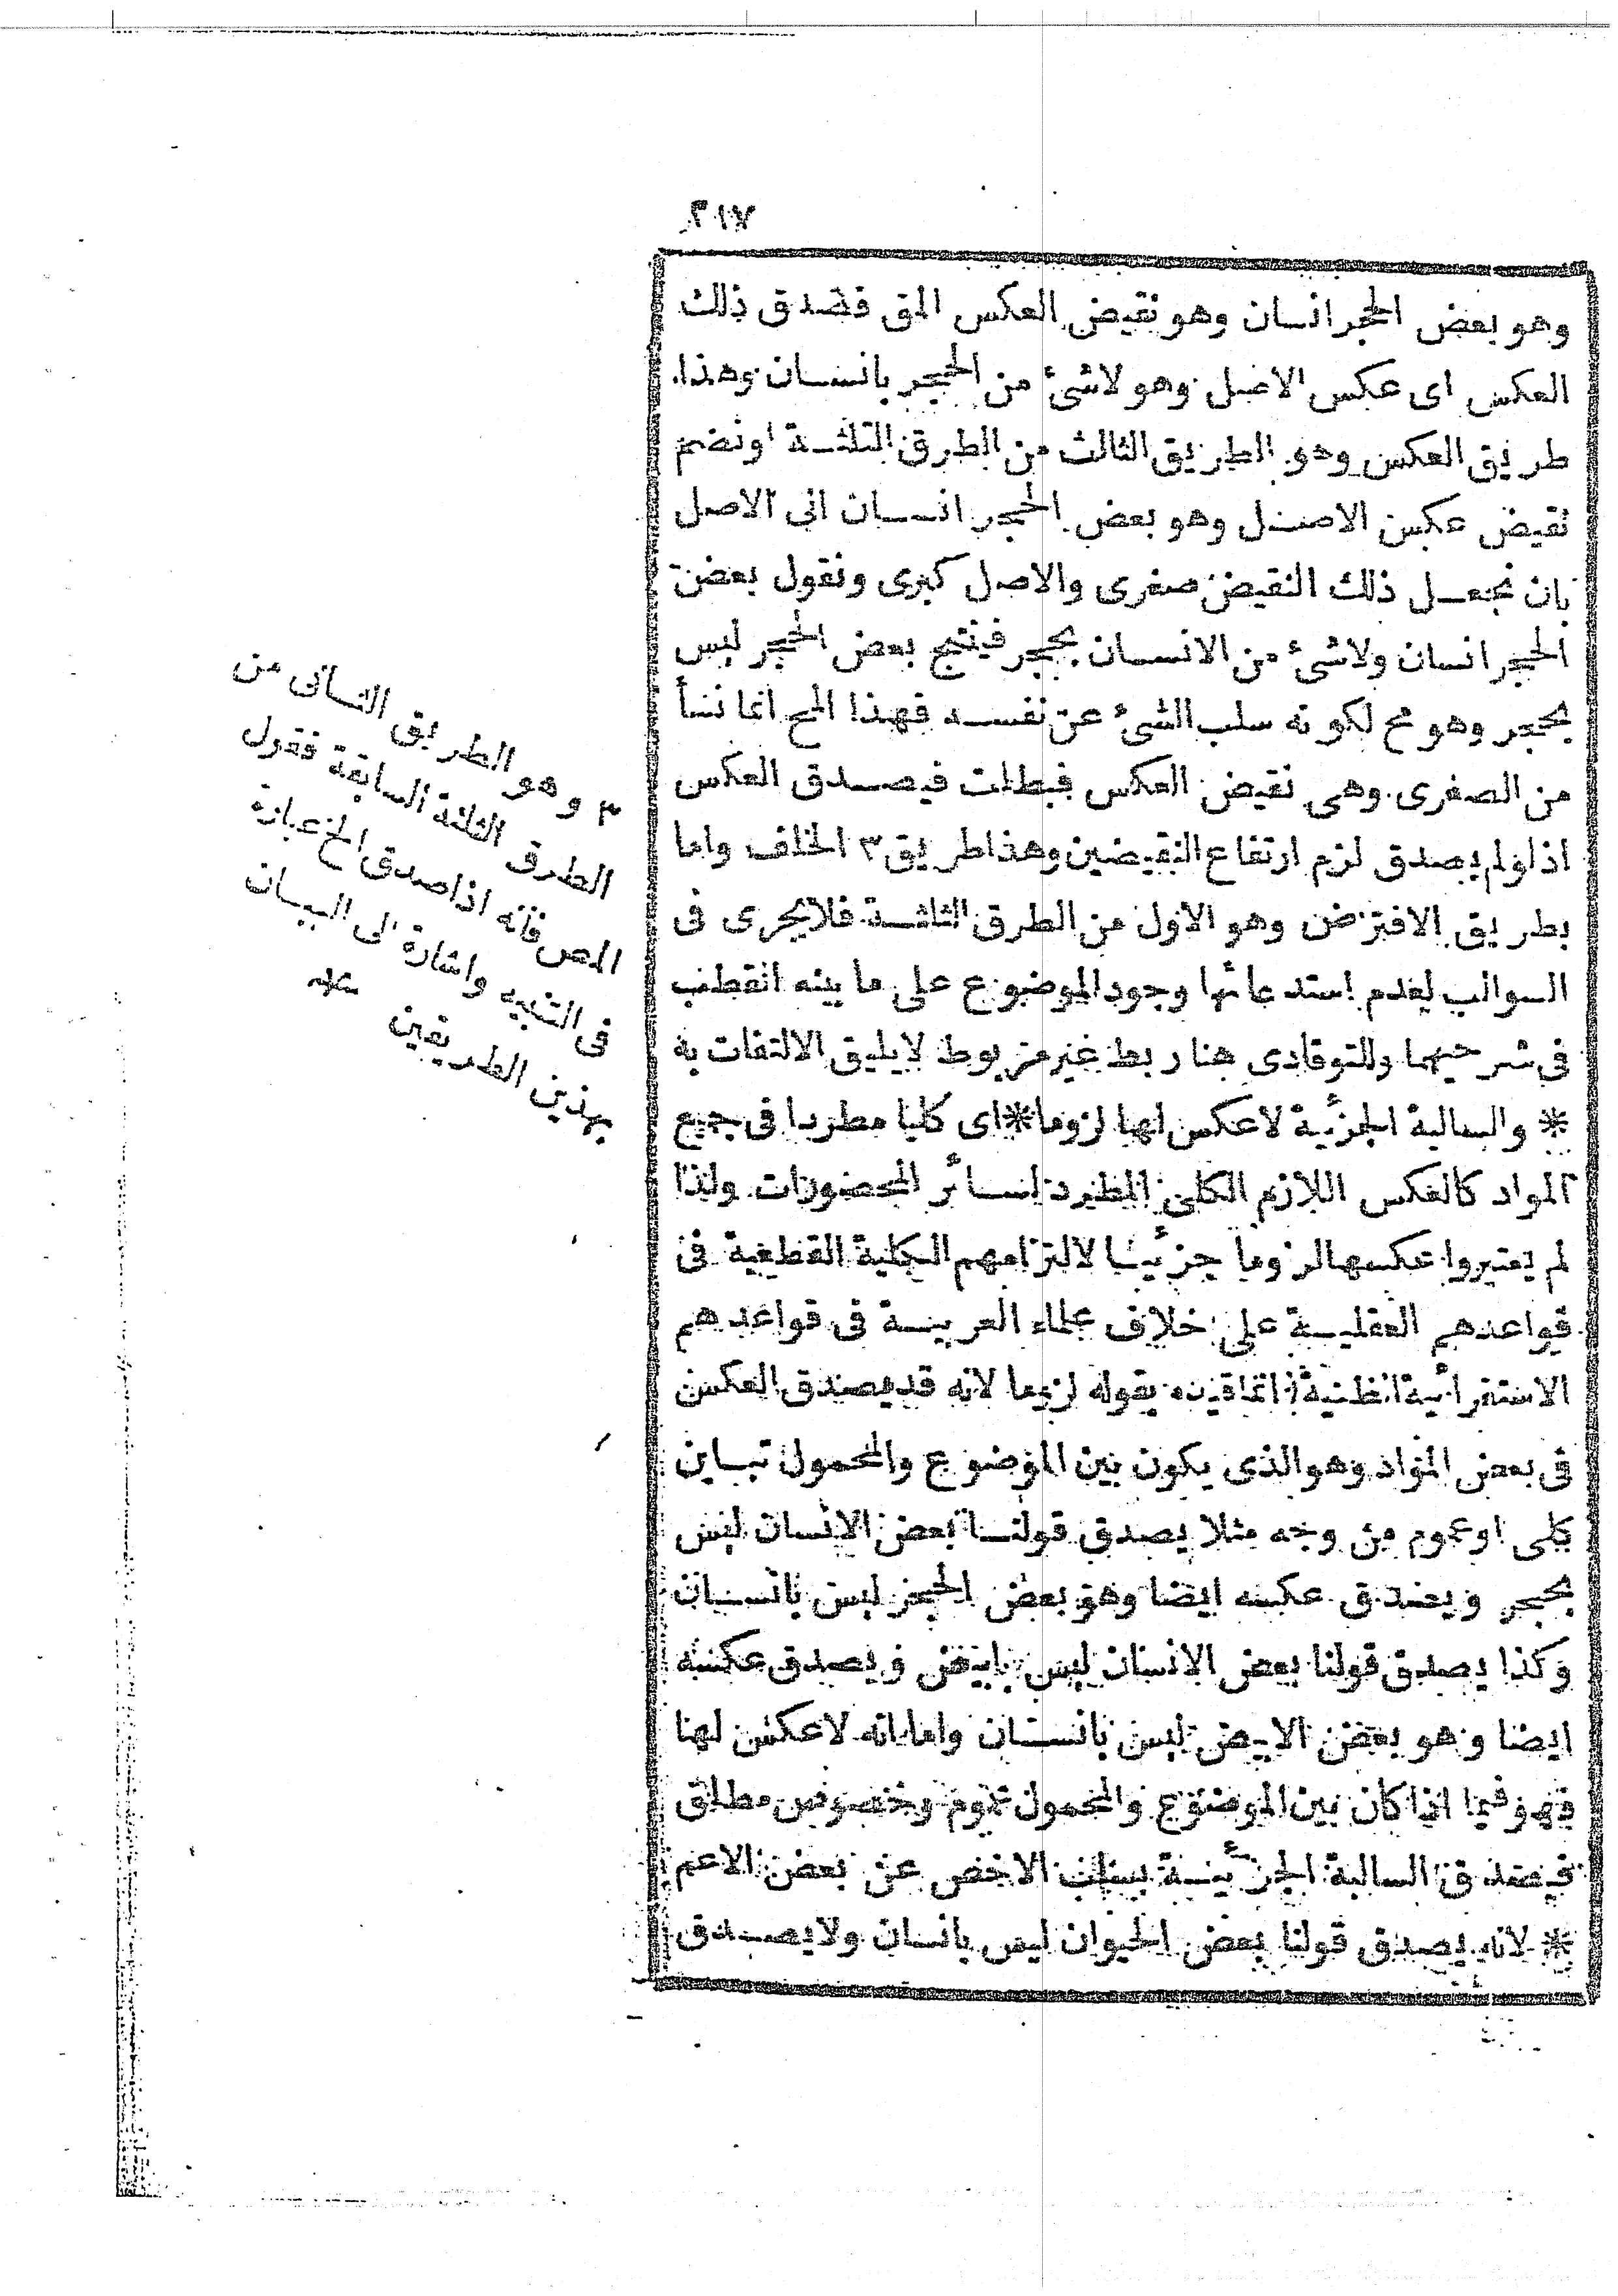 ٣١٧
وهو بعض الحجر انسان وهو نقيض العكس المق فصدق ذلك
العكس اى عكس الاصل وهو لاشئ من الحجر بانسان وهذا
طريق العكس وهو الطريق الثالث من الطرق الثلثة اونضم
نقيض عكس الاصل وهو بعض الحجر انسان الى الاصل
بان نجعل ذلك النقيض صغرى والاصل كبرى ونقول بعض
الحجر انسان ولاشئ من الانسان بحجر فينتج بعض الحجر ليس
بحجر وهو مح لكونه سلب الشئ عن نفسه فهذا المح انما نشأ
من الصغرى وهى نقيض العكس فبطلت فيصدق العكس
اذ لولم يصدق لزم ارتفاع النقيضين وهذا طريق ٣ الخلف واما
بطريق الافتراض وهو الاول من الطرق الثلثة فلايجرى فى
السوالب لعدم استدعائها وجود الموضوع على مابينه القطب
فى شرحيهما وللتوقادى هنا ربط غير مربوط لايليق الالتفات به
* والسالبة الجزئية لاعكس لها لزوما * اى كليا مطردا فى جميع
المواد كالعكس اللازم الكلى المطرد لسائر المحصورات ولذا
لم يعتبروا عكسها لزوما جزئيا لالتزامهم الكلية القطعية فى
قواعدهم العقلية على خلاف علماء العربية فى قواعدهم
الاستقرائية الظنية انما قيده بقوله لزوما لانه قد يصدق العكس
فى بعض المواد وهو الذى يكون بين الموضوع والمحمول تباين
كلى اوعموم من وجه مثلا يصدق قولنا بعض الانسان ليس
بحجر ويصدق عكسه ايضا وهو بعض الحجر ليس بانسان
وكذا يصدق قولنا بعض الانسان ليس بابيض ويصدق عكسه
ايضا وهو بعض الابيض ليس بانسان واما انه لاعكس لها
فهو فيما اذا كان بين الموضوع والمحمول عموم وخصوص مطلق
فيصدق السالبة الجزئية بسلب الاخص عن بعض الاعم
* لانه يصدق قولنا بعض الحيوان ليس بانسان ولايصدق
٣ وهو الطريق الثانى من
الطرق الثلثة السابقة فقول
المص فانه اذا صدق الخ عبارة
فى التنبيه واشارة الى البيان
بهذين الطريقين